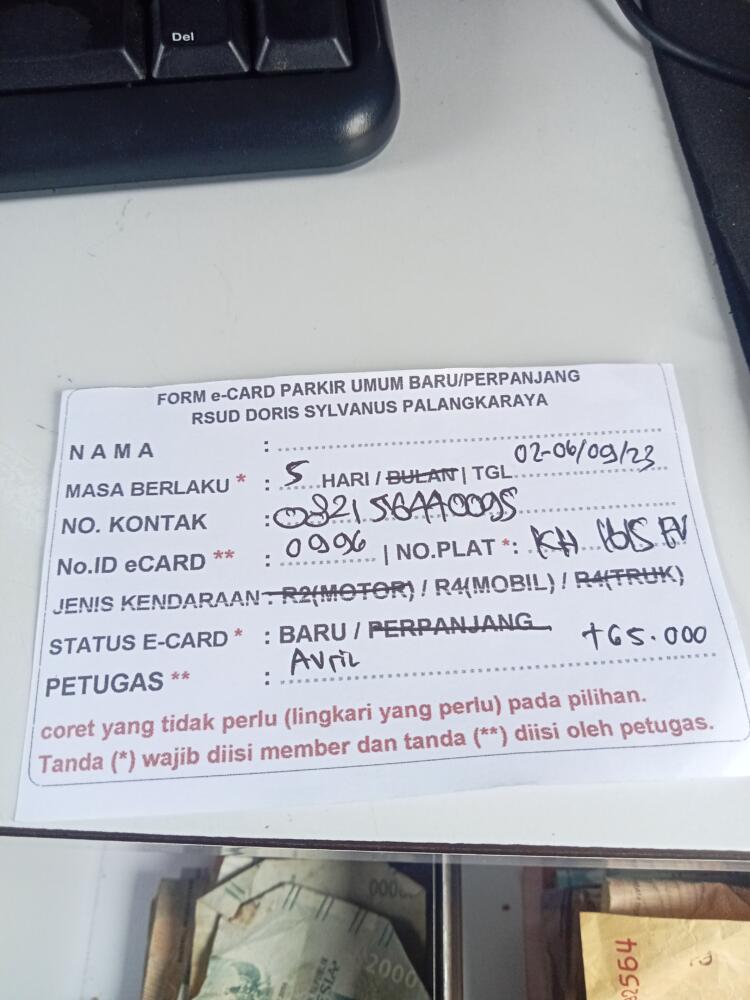 Del
FORM e-CARD PARKIR UMUM BARU/PERPANJANG
RSUD DORIS SYLVANUS PALANGKARAYA
NAMA :
MASA BERLAKU * : 5 HARI / BULAN | TGL 02-06/09/23
NO. KONTAK :
No.ID eCARD ** : 0996 | NO.PLAT *: KH
JENIS KENDARAAN : R2(MOTOR) / R4(MOBIL) / R4(TRUK)
STATUS E-CARD * : BARU / PERPANJANG +65.000
PETUGAS ** : Avril
coret yang tidak perlu (lingkari yang perlu) pada pilihan.
Tanda (*) wajib diisi member dan tanda (**) diisi oleh petugas.
2000